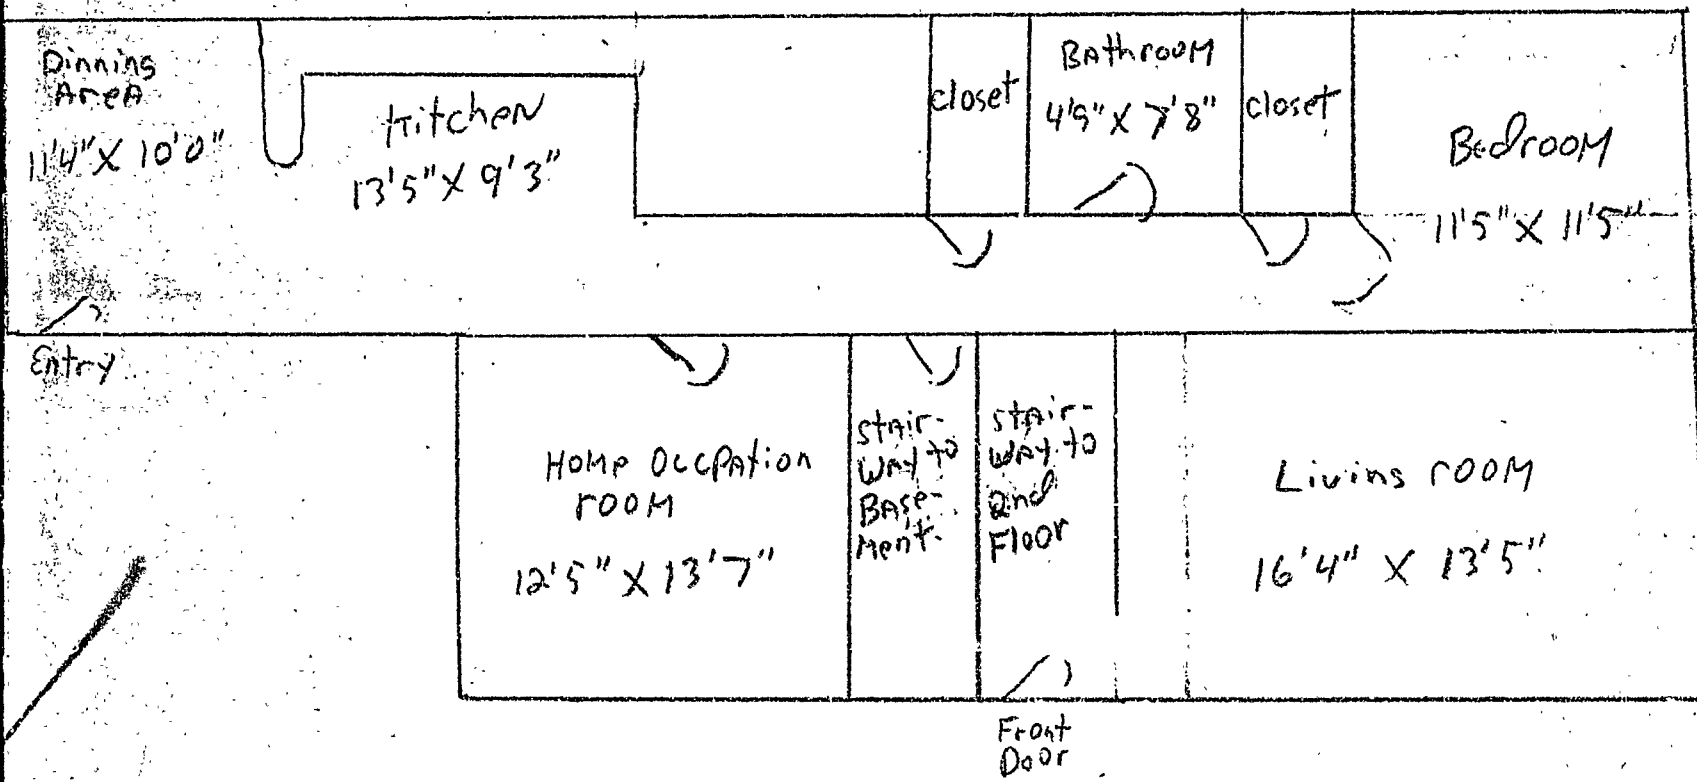 Dinning
Area
11'4" X 10'0"
Kitchen
13'5" X 9'3"
closet
Bathroom
4'9" X 7'8"
closet
Bedroom
11'5" X 11'5"
Entry
Home Occpation
room
12'5" X 13'7"
Stair-
way to
Base-
ment.
Stair-
way to
2nd
Floor
Living room
16'4" X 13'5"
Front
Door